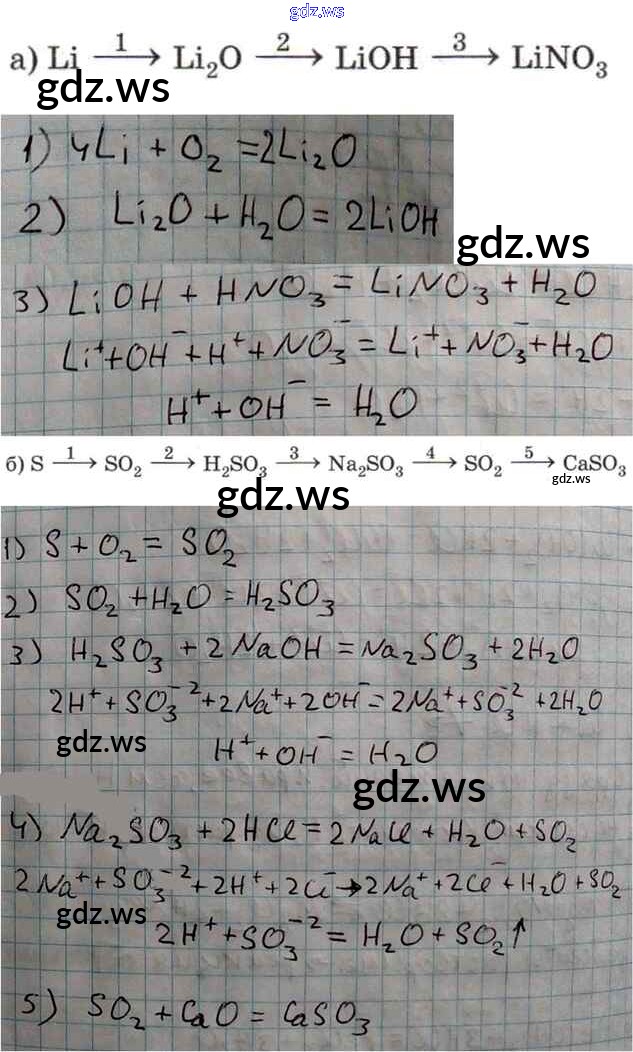 gdz.ws
а) Li —1→ Li₂O —2→ LiOH —3→ LiNO₃
gdz.ws
1) 4Li + O₂ = 2Li₂O
2) Li₂O + H₂O = 2LiOH
gdz.ws
3) LiOH + HNO₃ = LiNO₃ + H₂O
Li⁺ + OH⁻ + H⁺ + NO₃⁻ = Li⁺ + NO₃⁻ + H₂O
H⁺ + OH⁻ = H₂O
б) S —1→ SO₂ —2→ H₂SO₃ —3→ Na₂SO₃ —4→ SO₂ —5→ CaSO₃
gdz.ws
gdz.ws
1) S + O₂ = SO₂
2) SO₂ + H₂O = H₂SO₃
3) H₂SO₃ + 2NaOH = Na₂SO₃ + 2H₂O
2H⁺ + SO₃⁻² + 2Na⁺ + 2OH⁻ = 2Na⁺ + SO₃⁻² + 2H₂O
gdz.ws
H⁺ + OH⁻ = H₂O
gdz.ws
4) Na₂SO₃ + 2HCl = 2NaCl + H₂O + SO₂
2Na⁺ + SO₃⁻² + 2H⁺ + 2Cl⁻ → 2Na⁺ + 2Cl⁻ + H₂O + SO₂
gdz.ws
2H⁺ + SO₃⁻² = H₂O + SO₂↑
5) SO₂ + CaO = CaSO₃